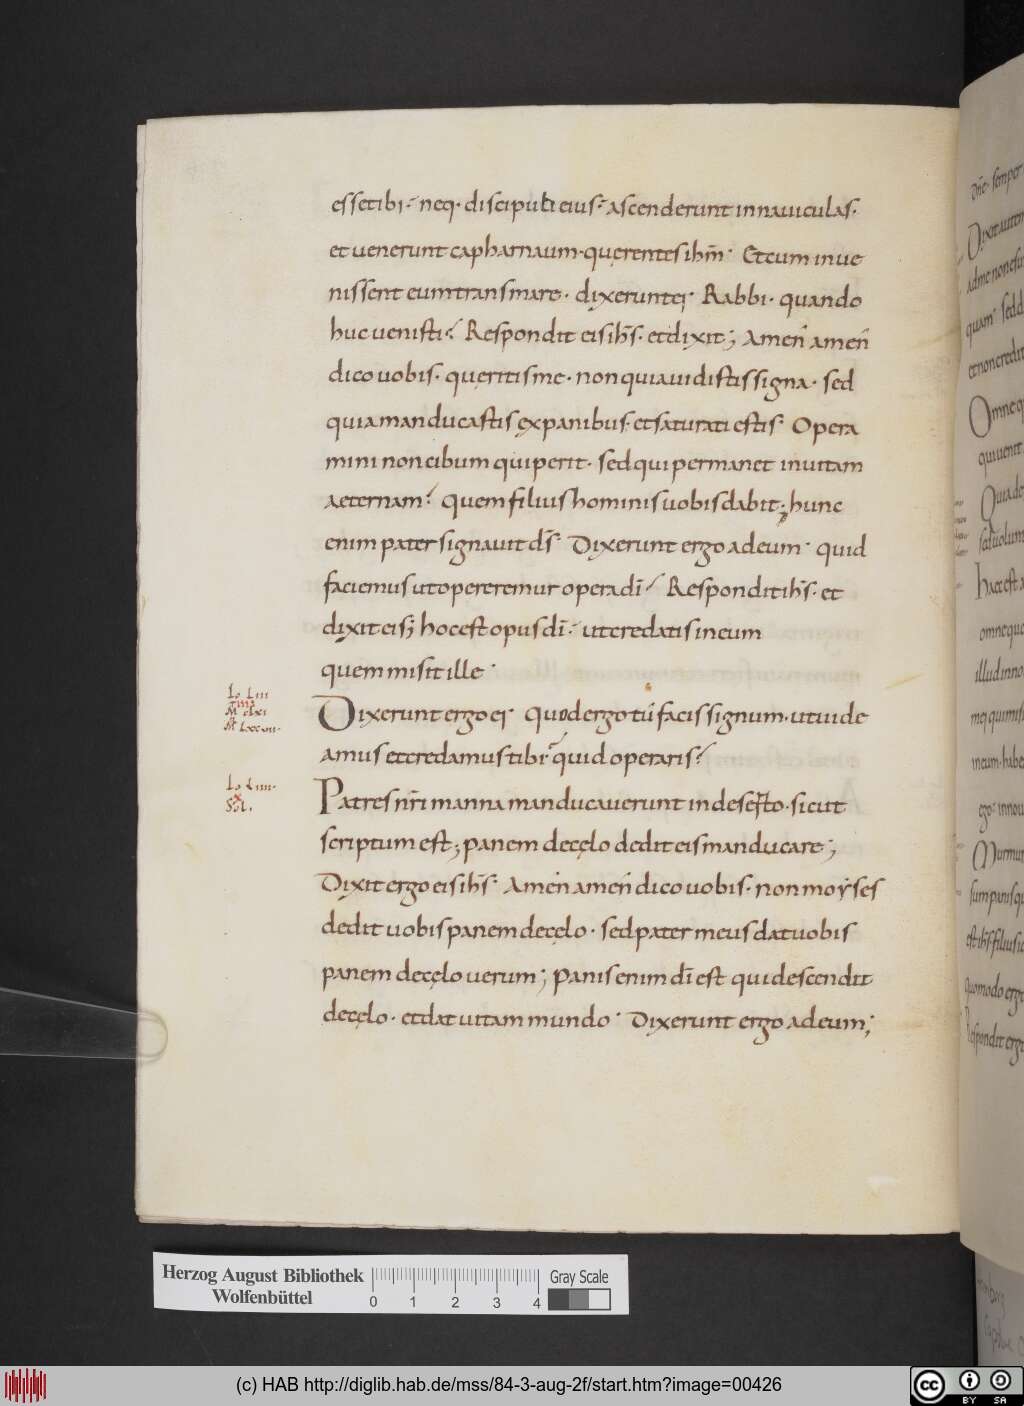 essetibi· neq· discipuli eius· ascenderunt in nauiculas·
et uenerunt capharnaum· querentes ihm̄· Et cum inue
nissent eum trans mare· dixerunt ei· Rabbi· quando
huc uenisti· Respondit eis ihs̄· et dixit; Amen amen
dico uobis· queritis me· non quia uidistis signa· sed
quia manducastis ex panibus· et saturati estis· Opera
mini non cibum qui perit· sed qui permanet in uitam
aeternam· Quem filius hominis uobis dabit; hunc
enim pater signauit ds̄· Dixerunt ergo ad eum· quid
faciemus ut opereremur opera dī· Respondit ihs̄· et
dixit eis; hoc est opus dī· ut credatis in eum
quem misit ille·
Io LIII
Dixerunt ergo ei· Quod ergo tu facis signum· ut uide
amus et credamus tibi· quid operaris·
Patres nr̄i manna manducauerunt in deserto· sicut
scriptum est; panem de cęlo dedit eis manducare;
Dixit ergo eis ihs̄· Amen amen dico uobis· non moyses
dedit uobis panem de cęlo· sed pater meus dat uobis
panem de cęlo uerum; Panis enim dī est qui descendit
de cęlo· et dat uitam mundo· Dixerunt ergo ad eum;
Herzog August Bibliothek
Wolfenbüttel
0 1 2 3 4
Gray Scale
(c) HAB http://diglib.hab.de/mss/84-3-aug-2f/start.htm?image=00426
cc BY SA